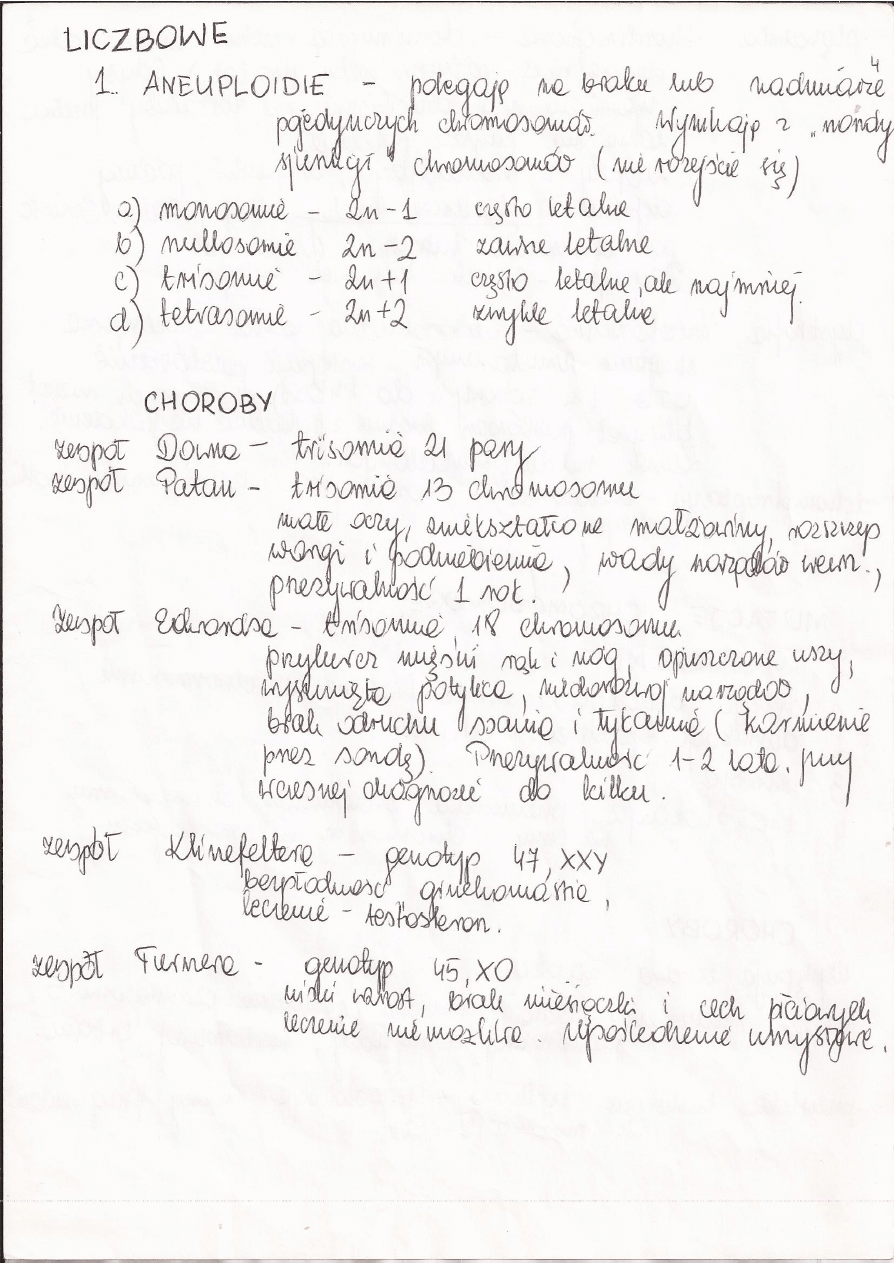 LICZBOWE
4
1. ANEUPLOIDIE – polegają na braku lub nadmiarze
pojedynczych chromosomów. Wynikają z "nondy
sjunkcji" chromosomów (nie rozejście się)
a) monosomie – 2n-1 często letalne
b) nullosomie 2n-2 zawsze letalne
c) trisomie – 2n+1 często letalne, ale najmniej.
d) tetrasomie – 2n+2 zwykle letalne
CHOROBY
zespół Downa – trisomia 21 pary
zespół Patau – trisomia 13 chromosomu
małe oczy, zniekształcone małżowiny, rozszczep
wargi i podniebienia, wady narządów wewn.,
przeżywalność 1 rok.
zespół Edwardsa – trisomia 18 chromosomu
przykurcz mięśni rąk i nóg, opuszczone uszy,
wysunięta potylica, niedorozwój narządów,
brak odruchu ssania i łykania (karmienie
przez sondę). Przeżywalność 1-2 lata. przy
wczesnej diagnozie do kilku.
zespół Klinefeltera – genotyp 47, XXY
bezpłodność ginekomastia,
leczenie – testosteron.
zespół Turnera – genotyp 45, XO
niski wzrost, brak miesiączki i cech płciowych
leczenie niemożliwe. Upośledzenie umysłowe.